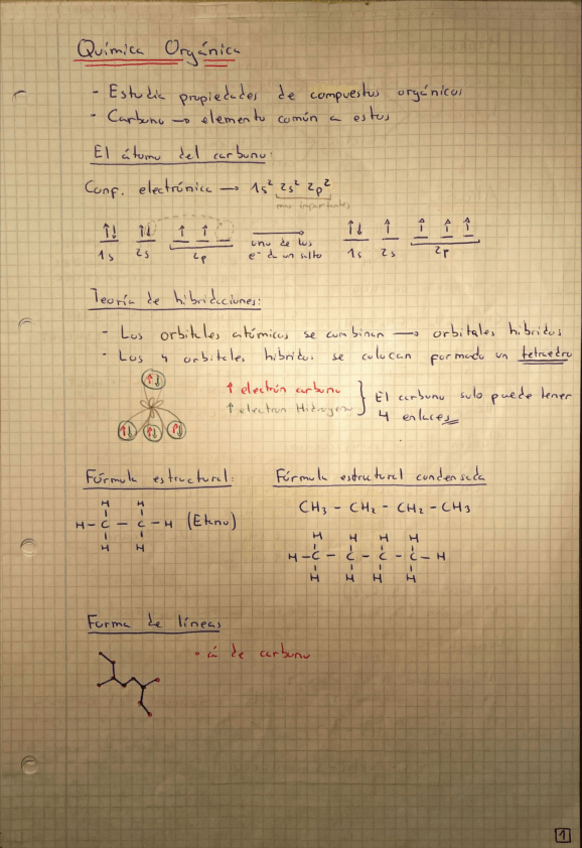 Química Orgánica
- Estudia propiedades de compuestos orgánicos
- Carbono → elemento común a estos
El átomo del carbono:
Conf. electrónica → 1s² 2s² 2p²
más importantes
↑↓ ↑↓ ↑ ↑ _ → ↑↓ ↑ ↑ ↑ ↑
1s 2s 2p uno de los e⁻ da un salto 1s 2s 2p
Teoría de hibridaciones:
- Los orbitales atómicos se combinan → orbitales híbridos
- Los 4 orbitales híbridos se colocan formado un tetraedro
↑ electrón carbono
↑ electron Hidrógeno
} El carbono solo puede tener
4 enlaces
Fórmula estructural:
H H
H - C - C - H (Etano)
H H
Fórmula estructural condensada
CH₃ - CH₂ - CH₂ - CH₃
H H H H
H - C - C - C - C - H
H H H H
Forma de líneas
· á de carbono
1